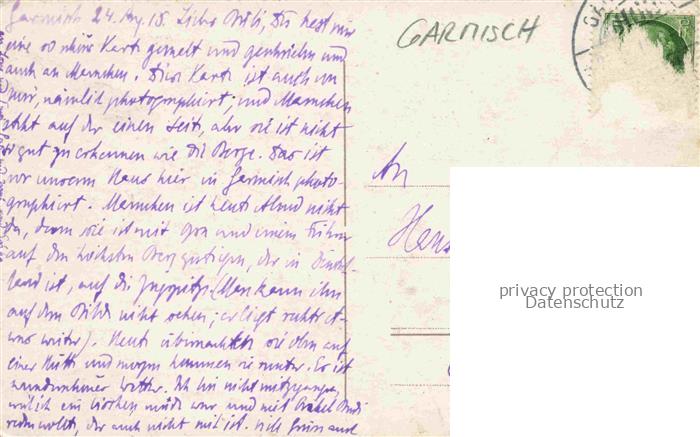 Garmisch 24. Aug. 18. Lieber Bubi, Du hast mir
eine so schöne Karte gemalt und geschrieben und
auch an Mamchen. Diese Karte ist auch von
mir, nämlich photographiert; und Mamchen
steht auf der einen Seite, aber sie ist nicht
so gut zu erkennen wie die Berge. Das ist
vor unserem Haus hier in Garmisch photo-
graphiert. Mamchen ist heute Abend nicht
da, denn sie ist mit und einem Führer
auf den höchsten Berg gestiegen, der in Deutsch-
land ist, auf die Zugspitze. (Man kann ihn
auf dem Bilde nicht sehen; er liegt rechts et-
was weiter). Heute übernachten sie oben auf
einer Hütte und morgen kommen sie runter. Es ist
wunderschönes Wetter. Ich bin nicht mitgegangen,
weil ich ein bischen müde war und mit Onkel
reden wollte, der auch nicht mit ist. Viele Grüsse
GARMISCH
An
Hans
privacy protection
Datenschutz